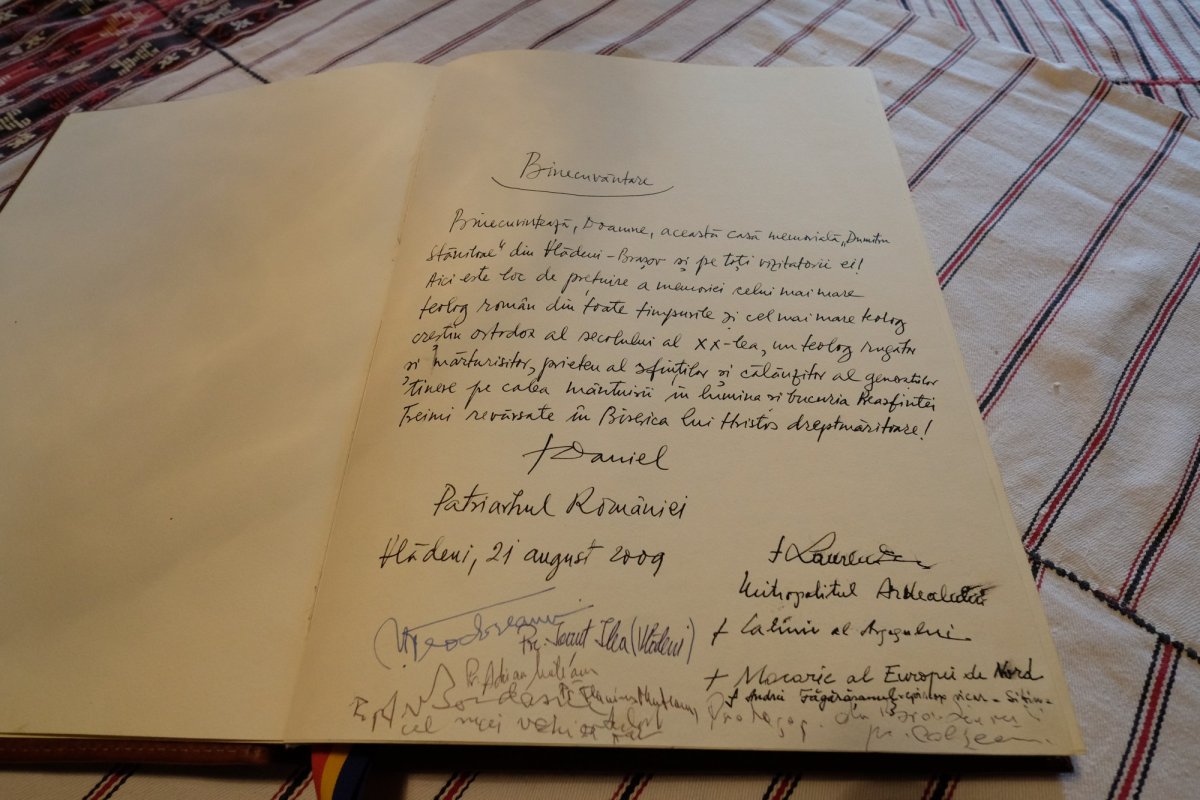 Binecuvântare
Binecuvintează, Doamne, această casă memorială „Dumitru
Stăniloae" din Vlădeni-Brașov și pe toți vizitatorii ei!
Aici este loc de prețuire a memoriei celui mai mare
teolog român din toate timpurile și cel mai mare teolog
creștin ortodox al secolului al XX-lea, un teolog rugător
și mărturisitor, prieten al sfinților și călăuzitor al generațiilor
tinere pe calea mântuirii în lumina și bucuria Preasfintei
Treimi revărsate în Biserica lui Hristos dreptmăritoare!
†Daniel
Patriarhul României
Vlădeni, 21 august 2009
† Laurentiu
Mitropolitul Ardealului
† Calinic al Argeșului
† Macarie al Europei de Nord
† Andrei Făgărășanul, episcop vicar - Sibiu
Pr. Ionuț Ilea (Vlădeni)
Pr. Adrian